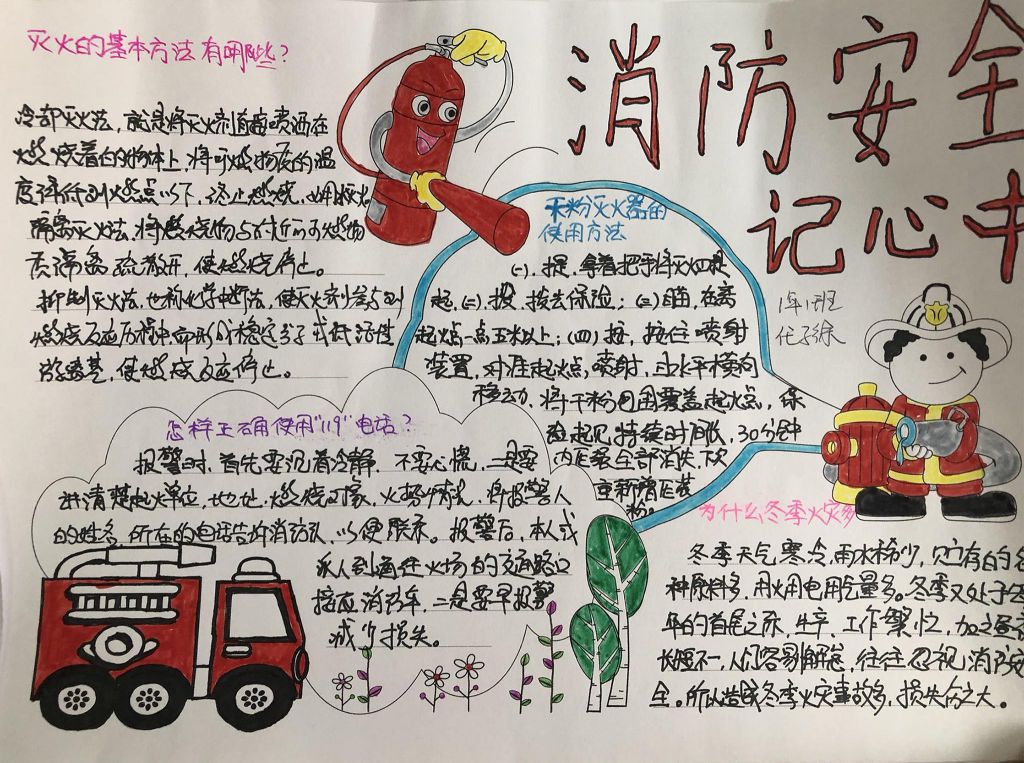 消防安全
记心中
1年1班
灭火的基本方法有哪些？
冷却灭火法，就是将灭火剂直接喷洒在
燃烧着的物体上，将可燃物质的温
度降低到燃点以下，终止燃烧，
隔离灭火法，将燃烧物与附近的可燃物
隔离疏散开，使燃烧停止。
抑制灭火法，也称化学中断法，使灭火剂参与到
燃烧反应历程中，稳定分子或低活性
游离基，使燃烧反应停止。
干粉灭火器的
使用方法
(一).提，拿着把手将灭火器提
起.(二).拔，拔去保险；(三)瞄，在离
起火点一点五米以上；(四)按，按住喷射
装置，对准起火点，喷射，由水平横向
移动，将干粉包围覆盖起火点，保
持续时间 30分钟
内压全部消失，下次
重新灌压装
粉。
怎样正确使用"119"电话？
报警时，首先要沉着冷静，不要心慌，二是要
讲清楚起火单位，地址，燃烧对象，火场情况，将报警人
的姓名，所在的电话告诉消防队，以便联系。报警后，本人或
派人到通往火场的交通路口
接应消防车，二是要早报警
减少损失。
为什么冬季火灾多
冬季天气寒冷，雨水稀少，贮存的各
种原料多，用火用电用气量多。冬季又处于
年的首尾之际，生产、工作繁忙，加之昼夜
长短不一，人们容易懈怠，往往忽视消防安
全。所以造成冬季火灾事故多，损失伤之大。